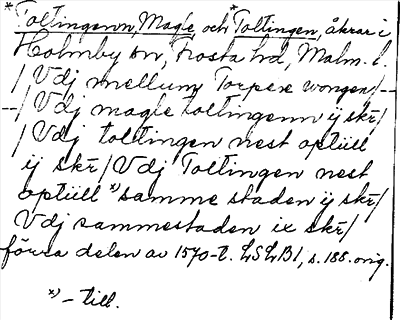 *Toltingenn, Magle och *Toltingen, åkrar i
Holmby sn, Frosta hd, Malm. l.
/ Vdj mellum Torpex wongen /--
--/ Vdj magle toltingenn ij skr̄ /
/ Vdj toltingen nest optüll
ij skr̄ / Vdj Toltingen nest
optüll *) samme staden ij skr̄ /
Vdj sammestaden ix skr̄ /
förra delen av 1570-t. LSLB1, s. 188. orig.
*) - till.